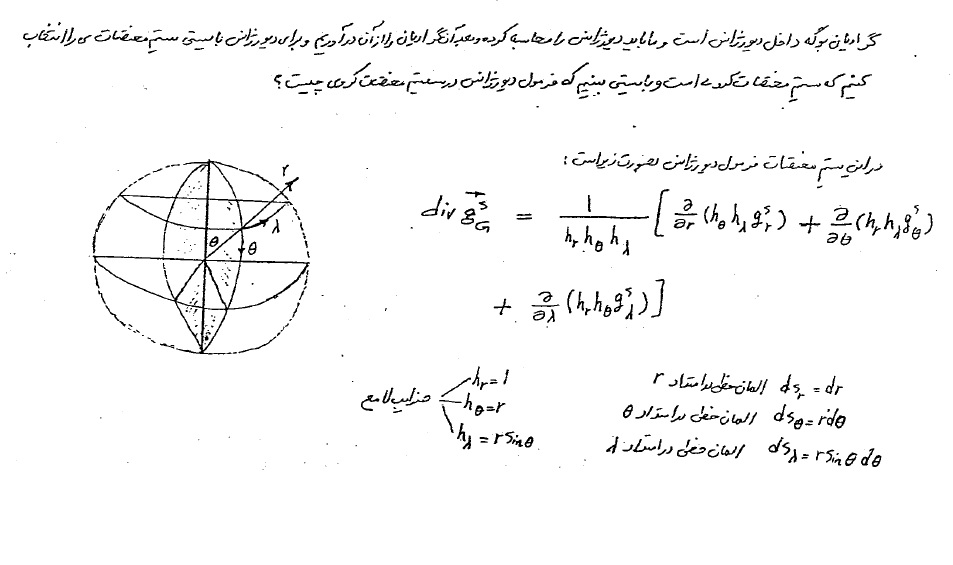 گرادیان بوگه داخل دیورژانس است و ما باید دیورژانس را محاسبه کرده و بعد آنگه گرادیان را از آن درآوریم و برای دیورژانس بایستی سیستم مختصات ی را انتخاب
کنیم که سیستم مختصات کروی است و بایستی ببینیم که فرمول دیورژانس در سیستم مختصات کروی چیست ؟
در این سیستم مختصات فرمول دیورژانس بصورت زیر است :
div g⃗ˢ_G = 1 / (h_r h_θ h_λ) [ ∂/∂r (h_θ h_λ gˢ_r) + ∂/∂θ (h_r h_λ gˢ_θ)
+ ∂/∂λ (h_r h_θ gˢ_λ) ]
r
λ
θ
θ
ضرایب لامع
h_r = 1
h_θ = r
h_λ = r sin θ
المان خطی در امتداد r ds_r = dr
المان خطی در امتداد θ ds_θ = rdθ
المان خطی در امتداد λ ds_λ = r sin θ dθ